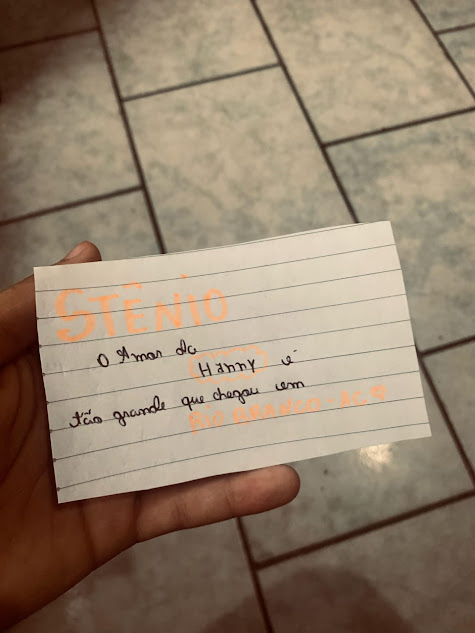 STÊNIO
O Amor da
Hanny é
tão grande que chegou em
RIO BRANCO-AC ♡